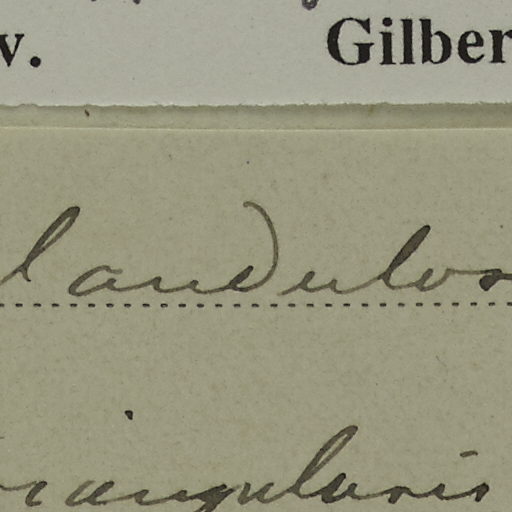 v. Gilber
landulos
riangularis